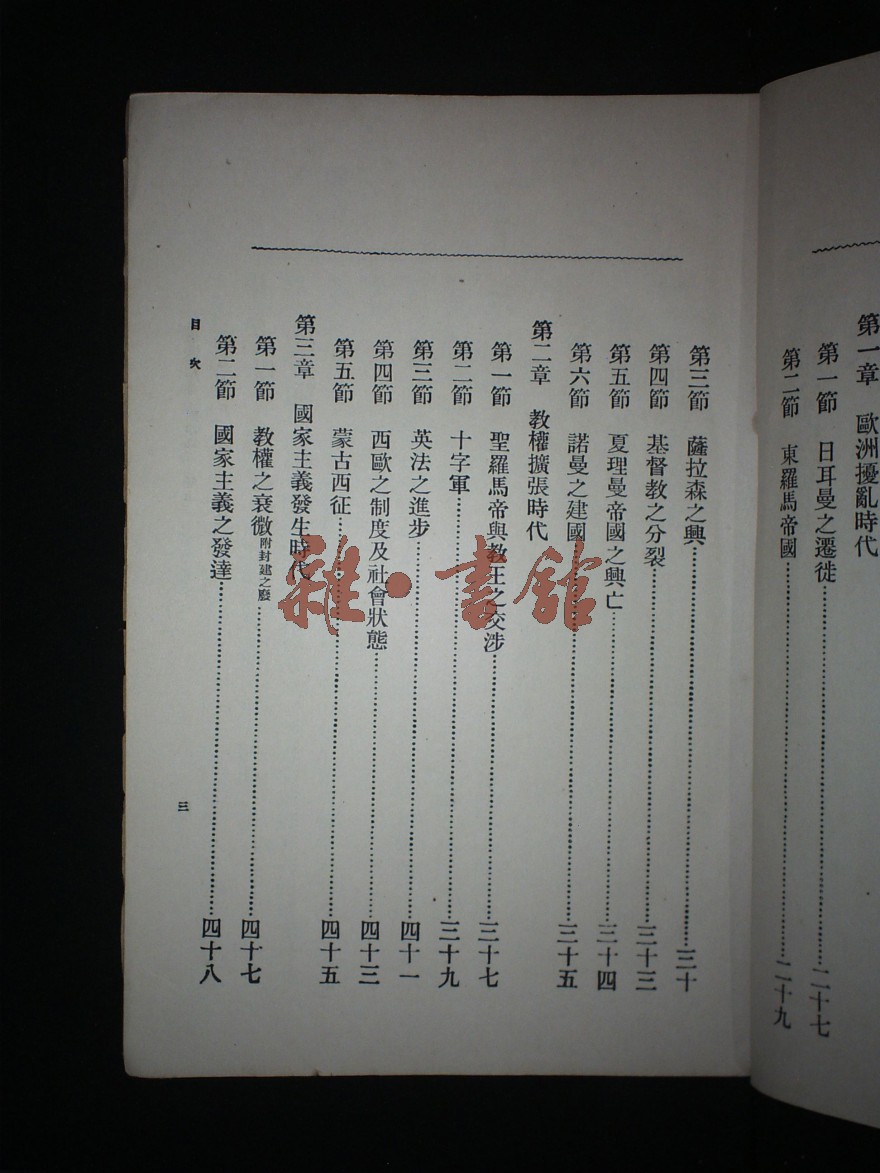 第一章 歐洲擾亂時代
第一節 日耳曼之遷徙……二十七
第二節 東羅馬帝國……二十九
第三節 薩拉森之興……三十
第四節 基督教之分裂……三十三
第五節 夏理曼帝國之興亡……三十四
第六節 諾曼之建國……三十五
第二章 教權擴張時代
第一節 聖羅馬帝與教王之交涉……三十七
第二節 十字軍……三十九
第三節 英法之進步……四十一
第四節 西歐之制度及社會狀態……四十三
第五節 蒙古西征……四十五
第三章 國家主義發生時代
第一節 教權之衰微附封建之廢……四十七
第二節 國家主義之發達……四十八
目次
三
雜·書館